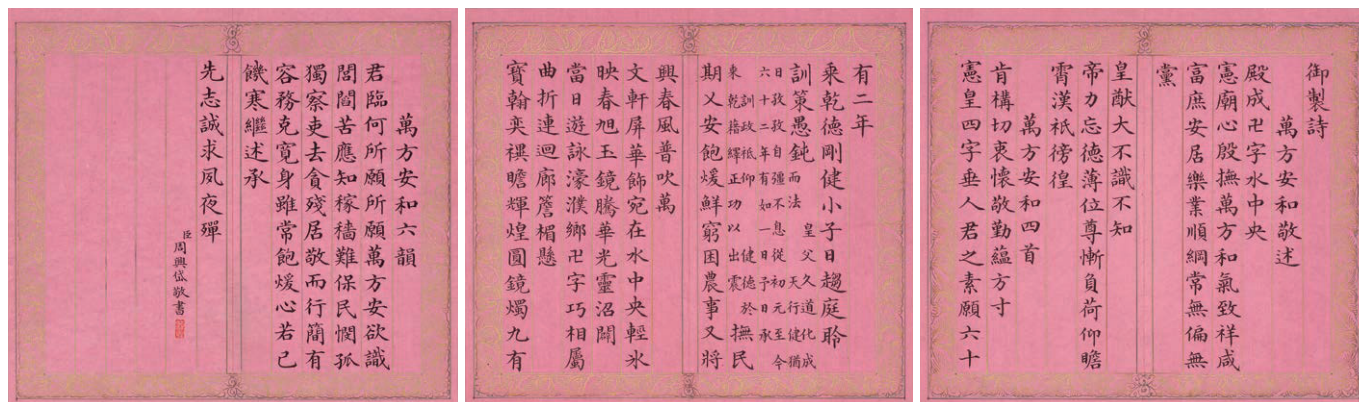 御製詩
萬方安和敬述
殿成卍字水中央
憲廟心殷撫萬方和氣致祥咸
富庶安居樂業順綱常無偏無
黨
皇猷大不識不知
帝力忘德薄位尊慚負荷仰瞻
霄漢祇徬徨
萬方安和四首
肯構切衷懷敬勤蘊方寸
憲皇四字垂人君之素願六十
有二年
乘乾德剛健小子日趨庭聆
訓策愚鈍
皇父久道化成
而法天行健猶
日孜孜自彊不息從初元至今
六十二年有如一日予日承
訓政祇仰健德於
乾籍繹正功以出震
撫民
期乂安飽煖鮮窮困農事又將
興春風普吹萬
文軒屏華飾宛在水中央輕冰
映春旭玉鏡騰華光靈沼闢
當日遊詠濠濮鄉卍字巧相屬
曲折連迴廊簷楣懸
寶翰奕禩瞻輝煌圓鏡燭九有
萬方安和六韻
君臨何所願所願萬方安欲識
閭閻苦應知稼穡難保民憫孤
獨察吏去貪殘居敬而行簡有
容務克寬身雖常飽煖心若己
饑寒繼述承
先志誠求夙夜殫
臣周興岱敬書